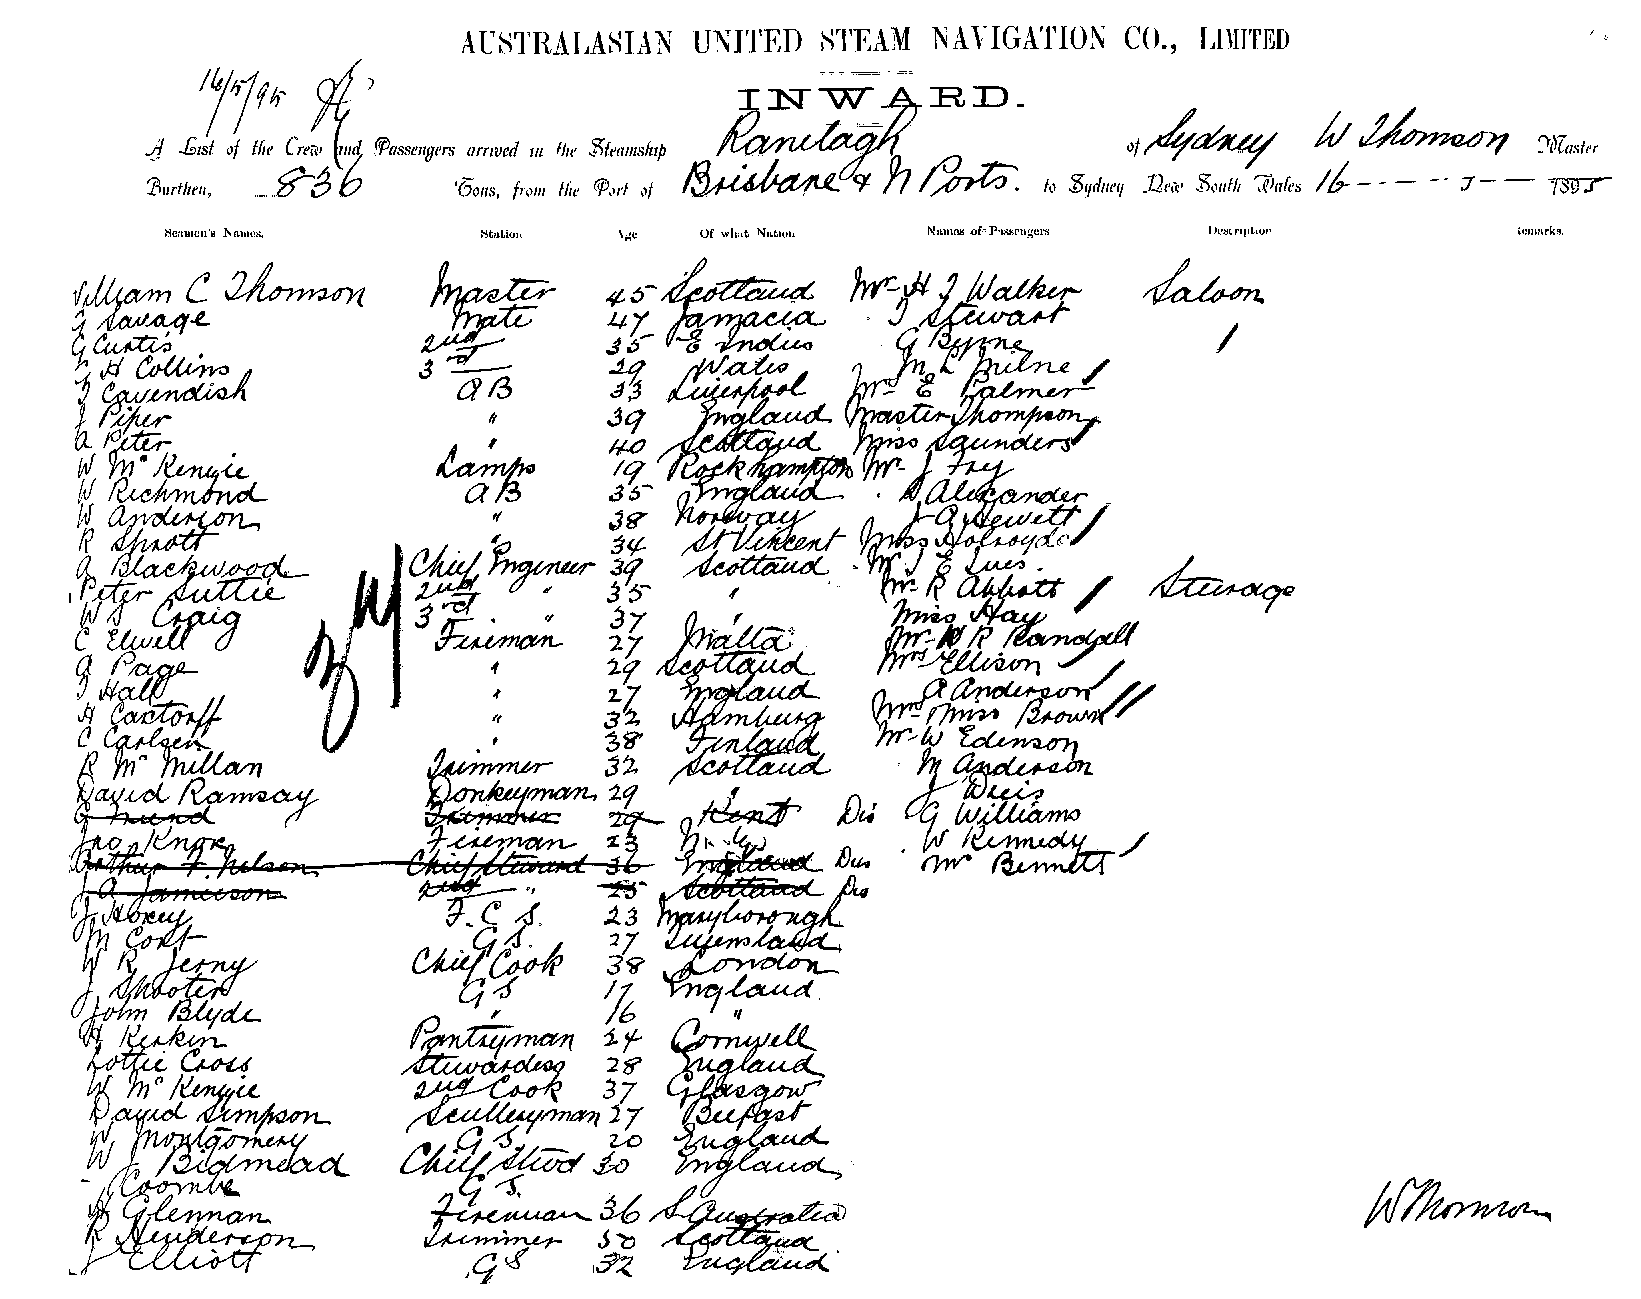 AUSTRALASIAN UNITED STEAM NAVIGATION CO., LIMITED
16/5/95
INWARD.
A List of the Crew and Passengers arrived in the Steamship Ranelagh of Sydney W Thomson Master
Burthen, 836 Tons, from the Port of Brisbane & N Ports. to Sydney New South Wales 16 - - - - 5 - - 1895
Seamen's Names. Station Age Of what Nation Names of Passengers Description Remarks.
William C Thomson Master 45 Scotland Mr H J Walker Saloon
Savage Mate 47 Jamacia Stewart
G Curtis 2nd 35 E Indies G Byrne
H Collins 3rd 29 Wales M L Milne
Cavendish AB 33 Liverpool Mrs E Palmer
J Piper " 39 England Master Thompson
A Peter " 40 Scotland Miss Saunders
W McKenzie Lamps 19 Rockhampton Mr J Frey
W Richmond AB 35 England Alexander
W Anderson " 38 Norway J A Hewett
R Sprott " 34 St Vincent Miss Holroyde
A Blackwood Chief Engineer 39 Scotland Mr J E Ives.
Peter Suttie 2nd " 35 " Mr R Abbott Steerage
W S Craig 3rd " 37 / Miss Hay
C Elwell Fireman 27 Malta Mr R Randall
G Page " 29 Scotland Mrs Ellison
T Hall " 27 England A Anderson
H Cantorff " 32 Hamburg Mrs Miss Brown
C Carlsen " 38 Finland Mr W Edenson
R McMillan Trimmer 32 Scotland M Anderson
David Ramsay Donkeyman 29 " J Weis
Trimmer 29 Kent Dis G Williams
Jno Knox Fireman 23 W Kennedy
Arthur F. Nelson Chief Steward 36 England Dis Mr Bennett
J A Jamieson 2nd " 25 Scotland Dis
J Abrey F. C S. 23 Maryborough
M Cort G S. 27 Queensland
W R Jerny Chief Cook 38 London
J Shooter G S 17 England
John Blyde " 16 "
H Kerkin Pantryman 24 Cornwell
Lottie Cross Stewardess 28 England
W McKenzie 2nd Cook 37 Glasgow
David Simpson Sculleryman 27 Belfast
W Montgomery G S. 20 England
W J Bidmead Chief Stwd 30 England
Coombe G S.
H Glennan Fireman 36 S Australia
R Henderson Trimmer 50 Scotland
J Elliott G S 32 England
W Thomson